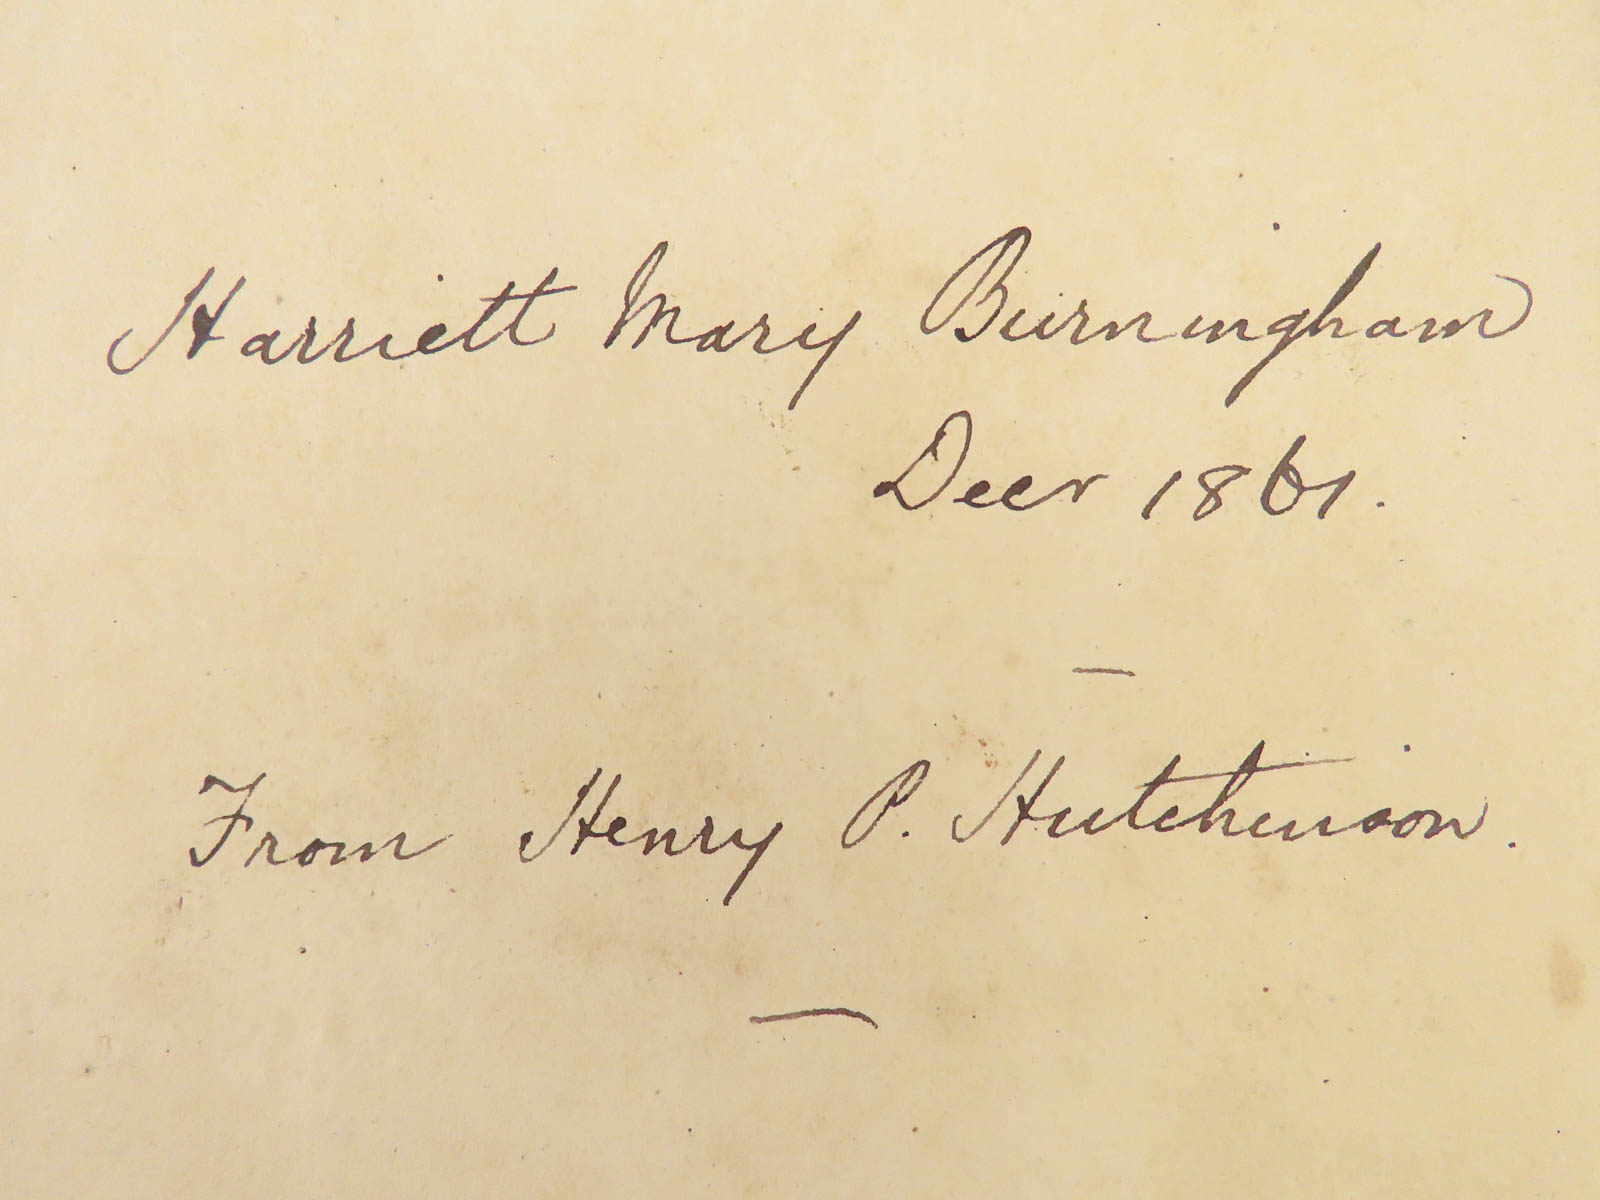 Harriett Mary Burningham
Decr 1861.
From Henry P. Hutchinson.